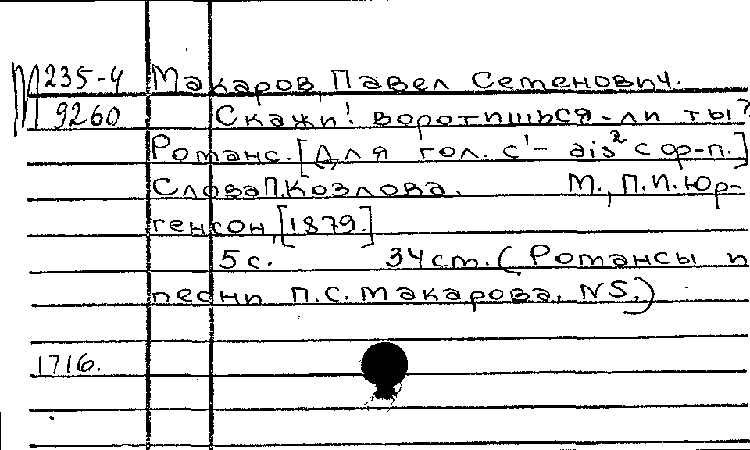 М 235-4 Макаров, Павел Семенович.
9260 Скажи! воротишься-ли ты?
Романс. [Для гол. c¹ – ais² с ф-п.]
Слова П. Козлова. М., П. И. Юр-
генсон, [1879.]
5 с. 34 см. (Романсы и
песни П. С. Макарова, N 5.)
1716.